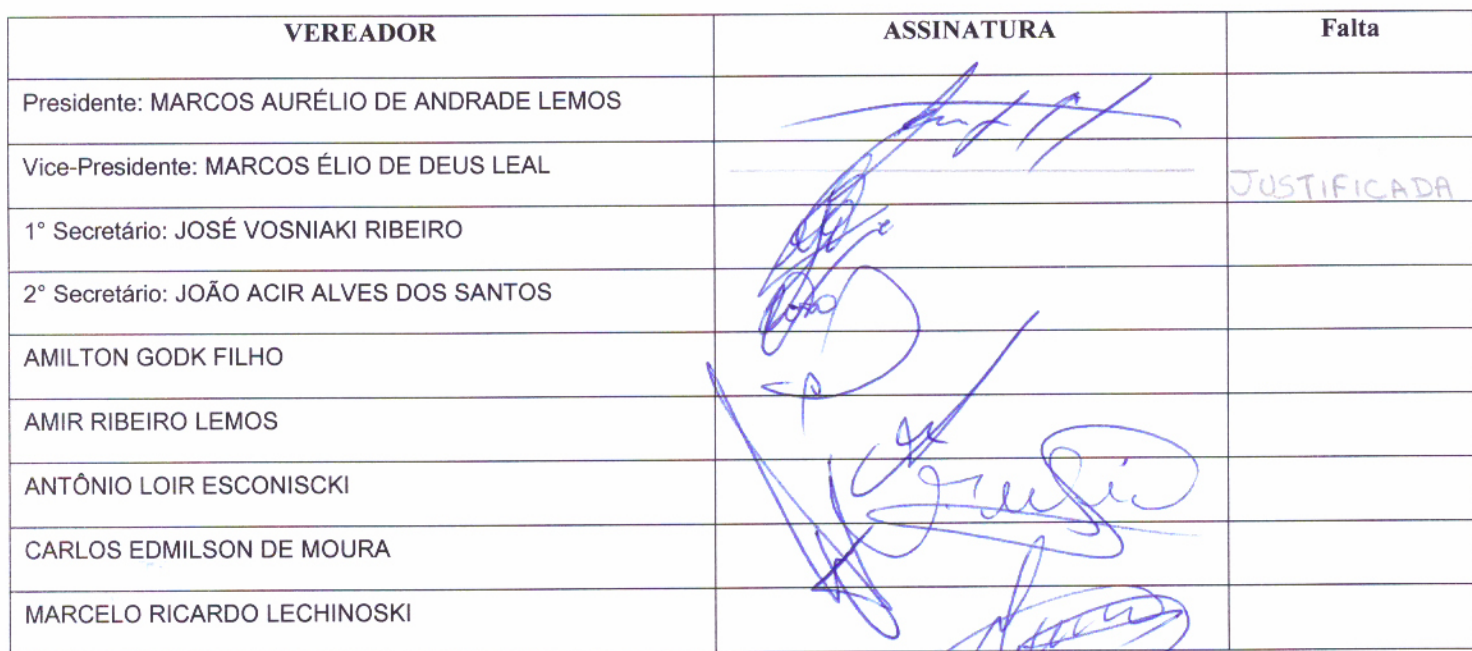 VEREADOR ASSINATURA Falta
Presidente: MARCOS AURÉLIO DE ANDRADE LEMOS
Vice-Presidente: MARCOS ÉLIO DE DEUS LEAL JUSTIFICADA
1° Secretário: JOSÉ VOSNIAKI RIBEIRO
2° Secretário: JOÃO ACIR ALVES DOS SANTOS
AMILTON GODK FILHO
AMIR RIBEIRO LEMOS
ANTÔNIO LOIR ESCONISCKI
CARLOS EDMILSON DE MOURA
MARCELO RICARDO LECHINOSKI